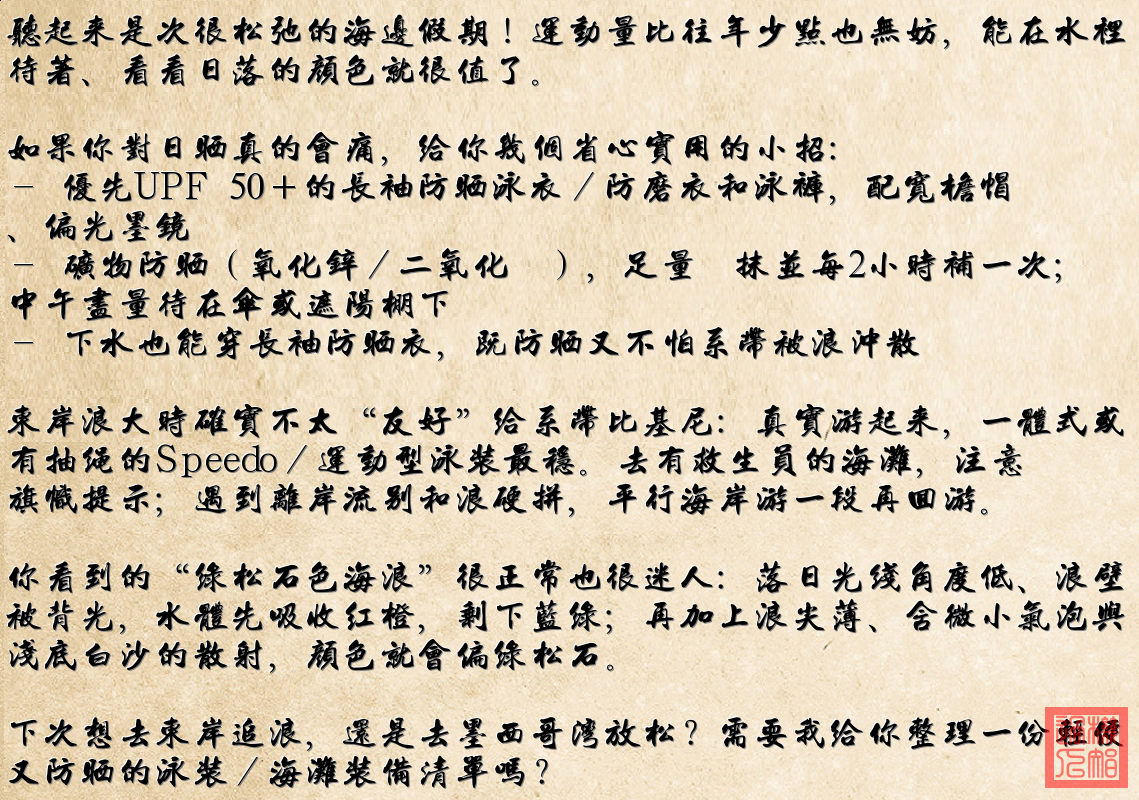 聽起来是次很松弛的海邊假期！運動量比往年少點也無妨，能在水裡
待著、看看日落的顔色就很值了。
如果你對日晒真的會痛，给你幾個省心實用的小招：
－ 優先UPF 50＋的長袖防晒泳衣／防磨衣和泳褲，配寬檐帽
、偏光墨鏡
－ 礦物防晒（氧化鋅／二氧化 ），足量 抹並每2小時補一次；
中午盡量待在傘或遮陽棚下
－ 下水也能穿長袖防晒衣，既防晒又不怕系帶被浪沖散
東岸浪大時確實不太“友好”给系帶比基尼：真實游起来，一體式或
有抽绳的Speedo／運動型泳裝最穩。去有救生員的海灘，注意
旗幟提示；遇到離岸流别和浪硬拼，平行海岸游一段再回游。
你看到的“綠松石色海浪”很正常也很迷人：落日光线角度低、浪壁
被背光，水體先吸收红橙，剩下藍綠；再加上浪尖薄、含微小氣泡與
淺底白沙的散射，顔色就會偏綠松石。
下次想去東岸追浪，還是去墨西哥灣放松？需要我给你整理一份輕便
又防晒的泳装／海灘裝備清單嗎？